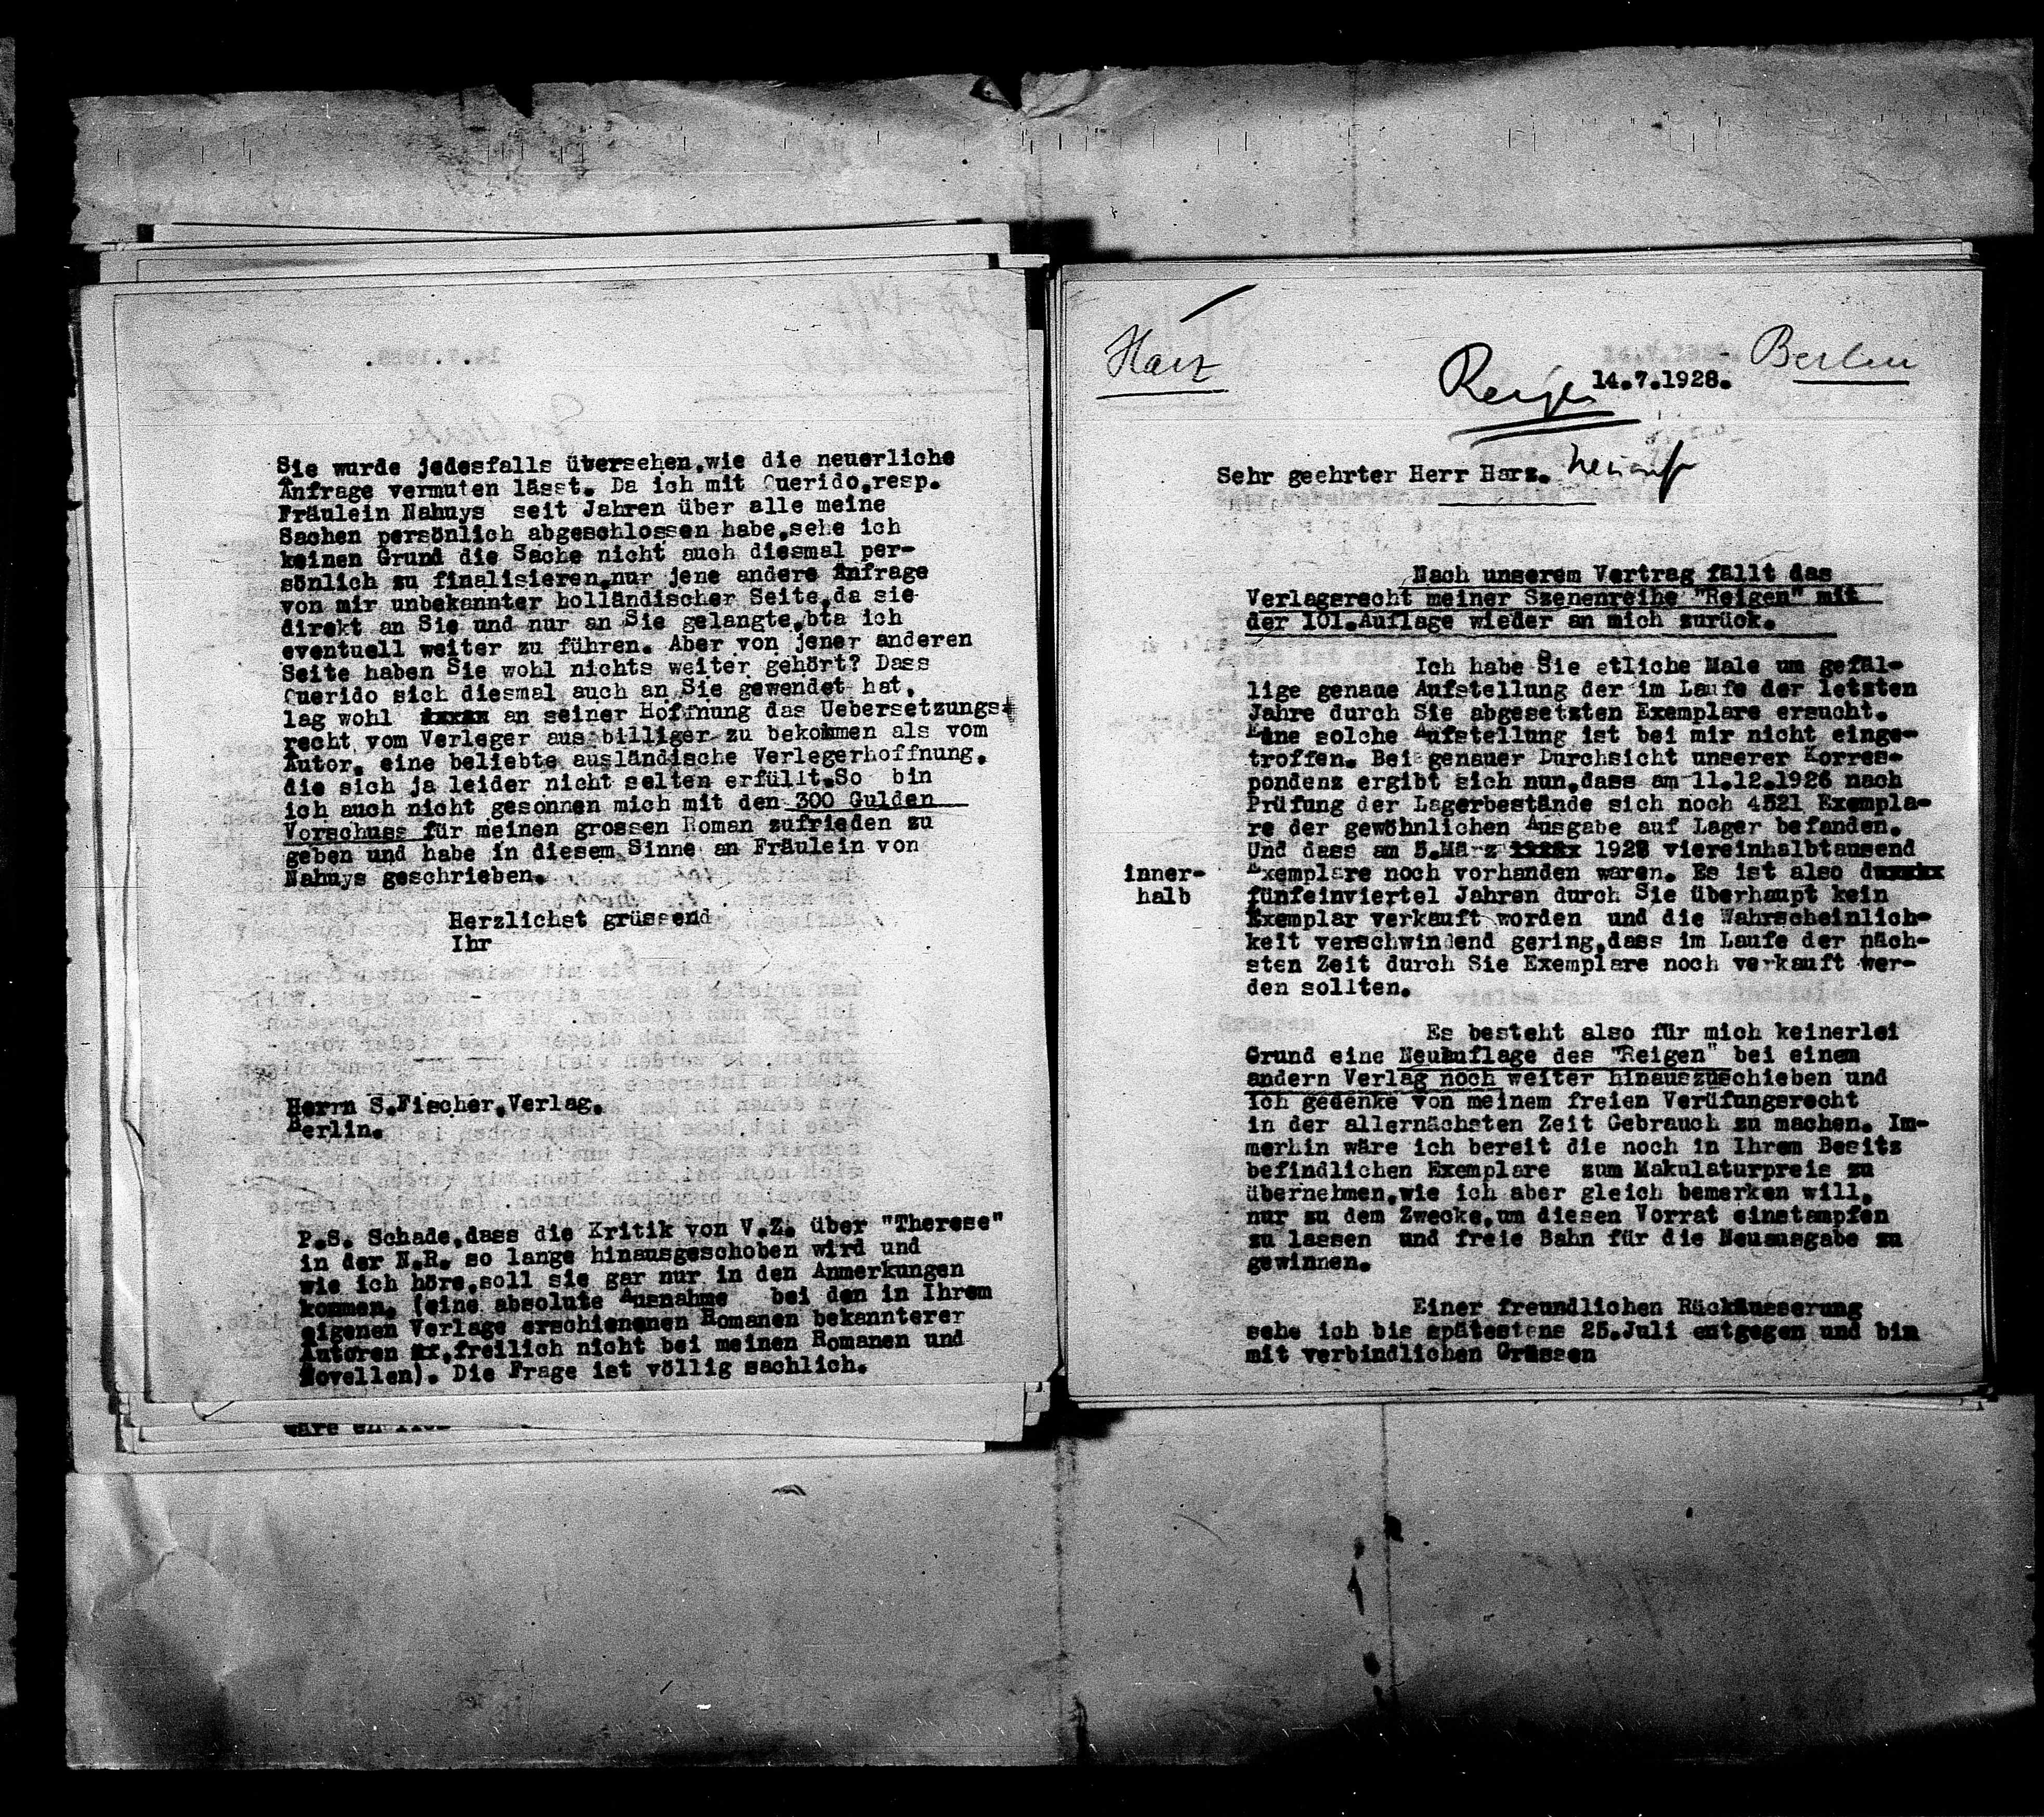 Sie wurde jedesfalls übersehen,wie die neuerliche
Anfrage vermuten lässt. Da ich mit Querido,resp.
Fräulein Nahuys seit Jahren über alle meine
Sachen persönlich abgeschlossen habe,sehe ich
keinen Grund die Sache nicht auch diesmal per-
sönlich zu finalisieren,nur jene andere Anfrage
von mir unbekannter holländischer Seite,da sie
direkt an Sie und nur an Sie gelangte,bta ich
eventuell weiter zu führen. Aber von jener anderen
Seite haben Sie wohl nichts weiter gehört? Dass
Querido sich diesmal auch an Sie gewendet hat,
lag wohl xxxxx an seiner Hoffnung das Uebersetzungs-
recht vom Verleger aus billiger zu bekommen als vom
Autor, eine beliebte ausländische Verlegerhoffnung,
die sich ja leider nicht selten erfüllt.So bin
ich auch nicht gesonnen mich mit den 300 Gulden
Vorschuss für meinen grossen Roman zufrieden zu
geben und habe in diesem Sinne an Fräulein von
Nahuys geschrieben.
Herzlichst grüssend
Ihr
Herrn S.Fischer,Verlag,
Berlin.
P.S. Schade,dass die Kritik von V.Z. über "Therese"
in der N.R. so lange hinausgeschoben wird und
wie ich höre,soll sie gar nur in den Anmerkungen
kommen. (eine absolute Ausnahme bei den in Ihrem
eigenen Verlage erschienenen Romanen bekannterer
Autoren xx,freilich nicht bei meinen Romanen und
Novellen). Die Frage ist völlig sachlich.
Harz
Berlin
Reigen
14.7.1928.
Sehr geehrter Herr Harz.
Nach unserem Vertrag fällt das
Verlagsrecht meiner Szenenreihe "Reigen" mit
der 101.Auflage wieder an mich zurück.
Ich habe Sie etliche Male um gefäl-
lige genaue Aufstellung der im Laufe der letzten
Jahre durch Sie abgesetzten Exemplare ersucht.
Eine solche Aufstellung ist bei mir nicht einge-
troffen. Bei genauer Durchsicht unserer Korres-
pondenz ergibt sich nun,dass am 11.12.1926 nach
Prüfung der Lagerbestände sich noch 4521 Exempla-
re der gewöhnlichen Ausgabe auf Lager befanden.
Und dass am 5.März xxxxx 1928 viereinhalbtausend
Exemplare noch vorhanden waren. Es ist also dxxxxx
inner-
halb
fünfeinviertel Jahren durch Sie überhaupt kein
Exemplar verkauft worden und die Wahrscheinlich-
keit verschwindend gering,dass im Laufe der näch-
sten Zeit durch Sie Exemplare noch verkauft wer-
den sollten.
Es besteht also für mich keinerlei
Grund eine Neuauflage des "Reigen" bei einem
andern Verlag noch weiter hinauszuschieben und
ich gedenke von meinem freien Verüfungsrecht
in der allernächsten Zeit Gebrauch zu machen. Im-
merhin wäre ich bereit die noch in Ihrem Besitz
befindlichen Exemplare zum Makulaturpreis zu
übernehmen,wie ich aber gleich bemerken will,
nur zu dem Zwecke,um diesen Vorrat einstampfen
zu lassen und freie Bahn für die Neuausgabe zu
gewinnen.
Einer freundlichen Rückäusserung
sehe ich bis spätestens 25.Juli entgegen und bin
mit verbindlichen Grüssen